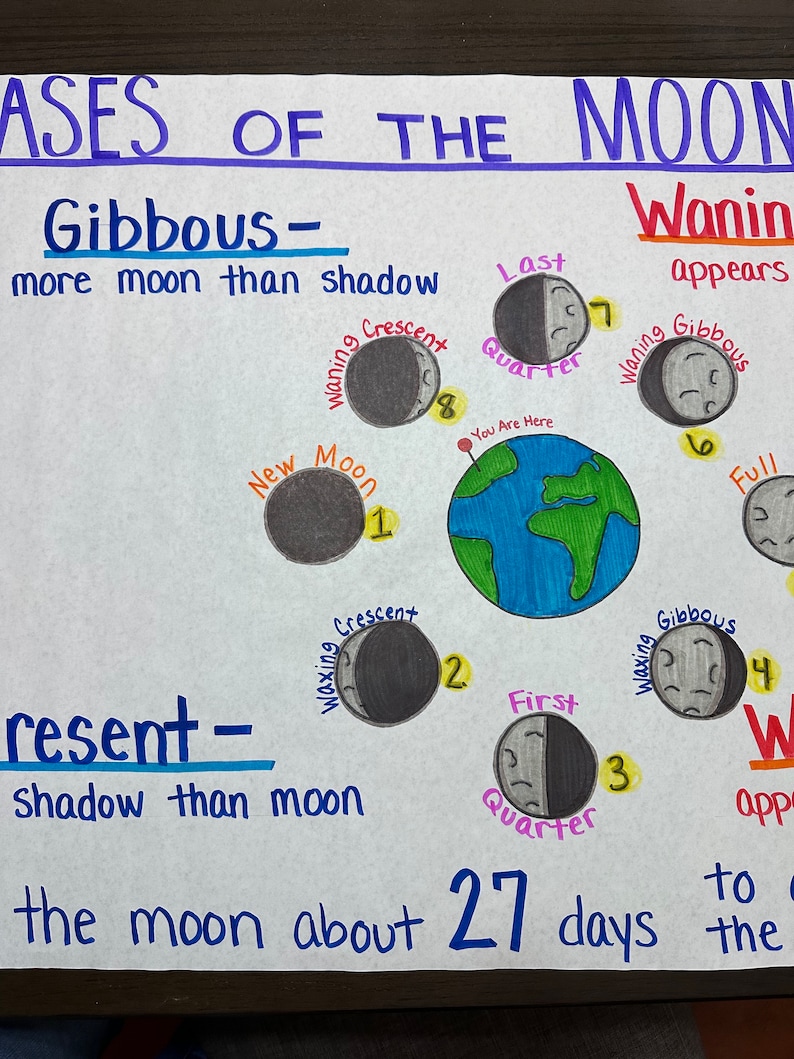 ASES OF THE MOON
Gibbous-
more moon than shadow
Wanin
appears
Last
Quarter
7
Waning Crescent
8
Waning Gibbous
6
You Are Here
New Moon
1
Full
Waxing Crescent
2
Waxing Gibbous
4
First
Quarter
3
resent-
shadow than moon
W
app
the moon about 27 days
to
the